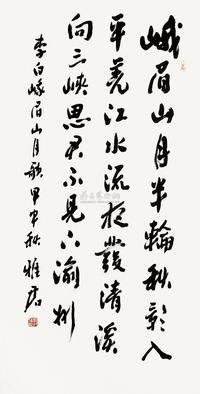 峨眉山月半轮秋影入
平羌江水流夜發清溪
向三峡思君不見下渝州
李白峨眉山月歌甲午秋雅君